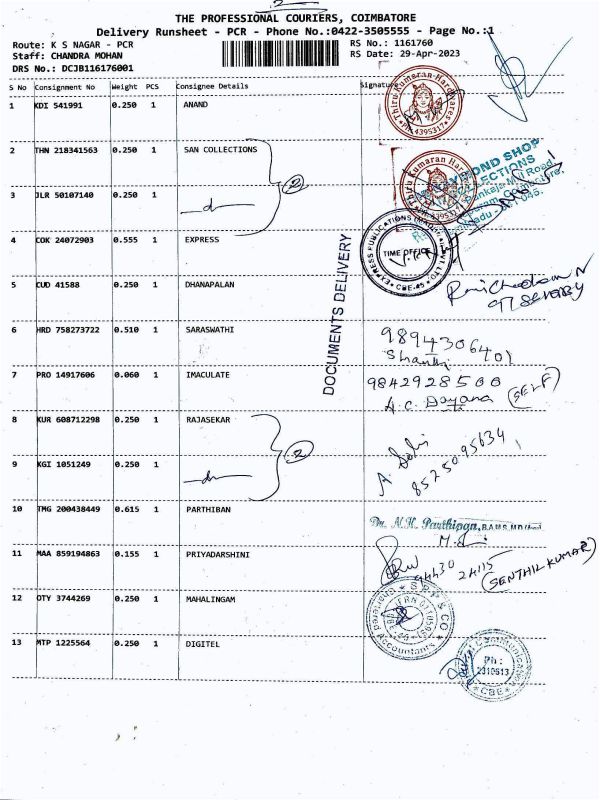 2
THE PROFESSIONAL COURIERS, COIMBATORE
Delivery Runsheet - PCR - Phone No.:0422-3505555 - Page No.:1
Route: K S NAGAR - PCR
RS No.: 1161760
Staff: CHANDRA MOHAN
RS Date: 29-Apr-2023
DRS No.: DCJB116176001
S No Consignment No Weight PCS Consignee Details Signature
1 KDI 541991 0.250 1 ANAND
Thiru Kumaran Hardwares
PH: 4395317
2 THN 218341563 0.250 1 SAN COLLECTIONS
Thiru Kumaran
4395317
RAYMOND SHOP
3 JLR 50107140 0.250 1
2
4 COK 24072903 0.555 1 EXPRESS
EXPRESS PUBLICATIONS (MADURAI) PVT LTD
TIME OFFICE
CBE-45
DOCUMENTS DELIVERY
5 CUD 41588 0.250 1 DHANAPALAN
6 HRD 758273722 0.510 1 SARASWATHI
9894306401
Shanthi
7 PRO 14917606 0.060 1 IMACULATE
9842928500
A.C. Dayana (SELF)
8 KUR 608712298 0.250 1 RAJASEKAR
9 KGI 1051249 0.250 1
2
8525095634
10 TMG 200438449 0.615 1 PARTHIBAN
Dr. N.M. Parthiban, B.A.M.S, M.D
11 MAA 859194863 0.155 1 PRIYADARSHINI
94430 24115
(SENTHIL KUMAR)
12 OTY 3744269 0.250 1 MAHALINGAM
S P P & CO
Chartered Accountants
13 MTP 1225564 0.250 1 DIGITEL
Communication
Ph:
2310513
CBE